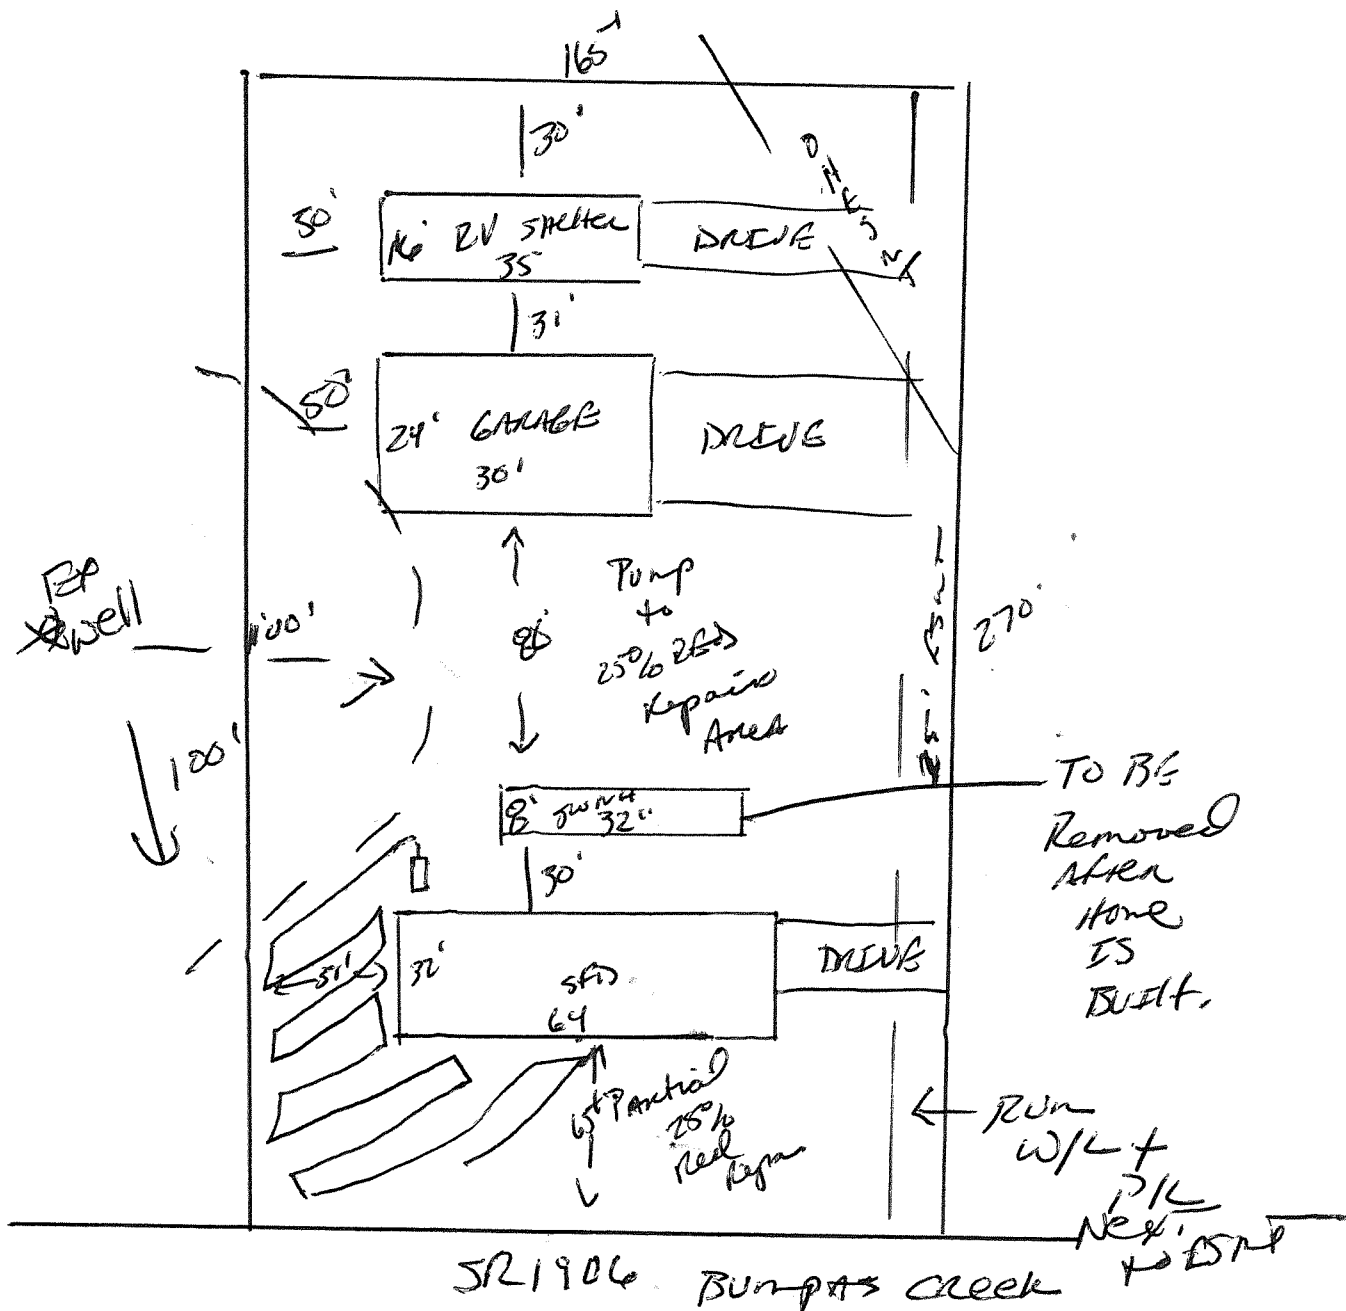 165'
30'
50'
16' RV Shelter
35
DRIVE
31'
50'
24' GARAGE
30'
DRIVE
EP
well
100'
100'
Pump
to
25% RED
Repair
Area
270'
8'
32'
TO BE
Removed
After
Home
IS
Built.
30'
32'
SFD
64
DRIVE
Partial
25%
Red
Repair
Run
W/L +
P/L
Next
to ESMT
SR1906 Bumpas Creek